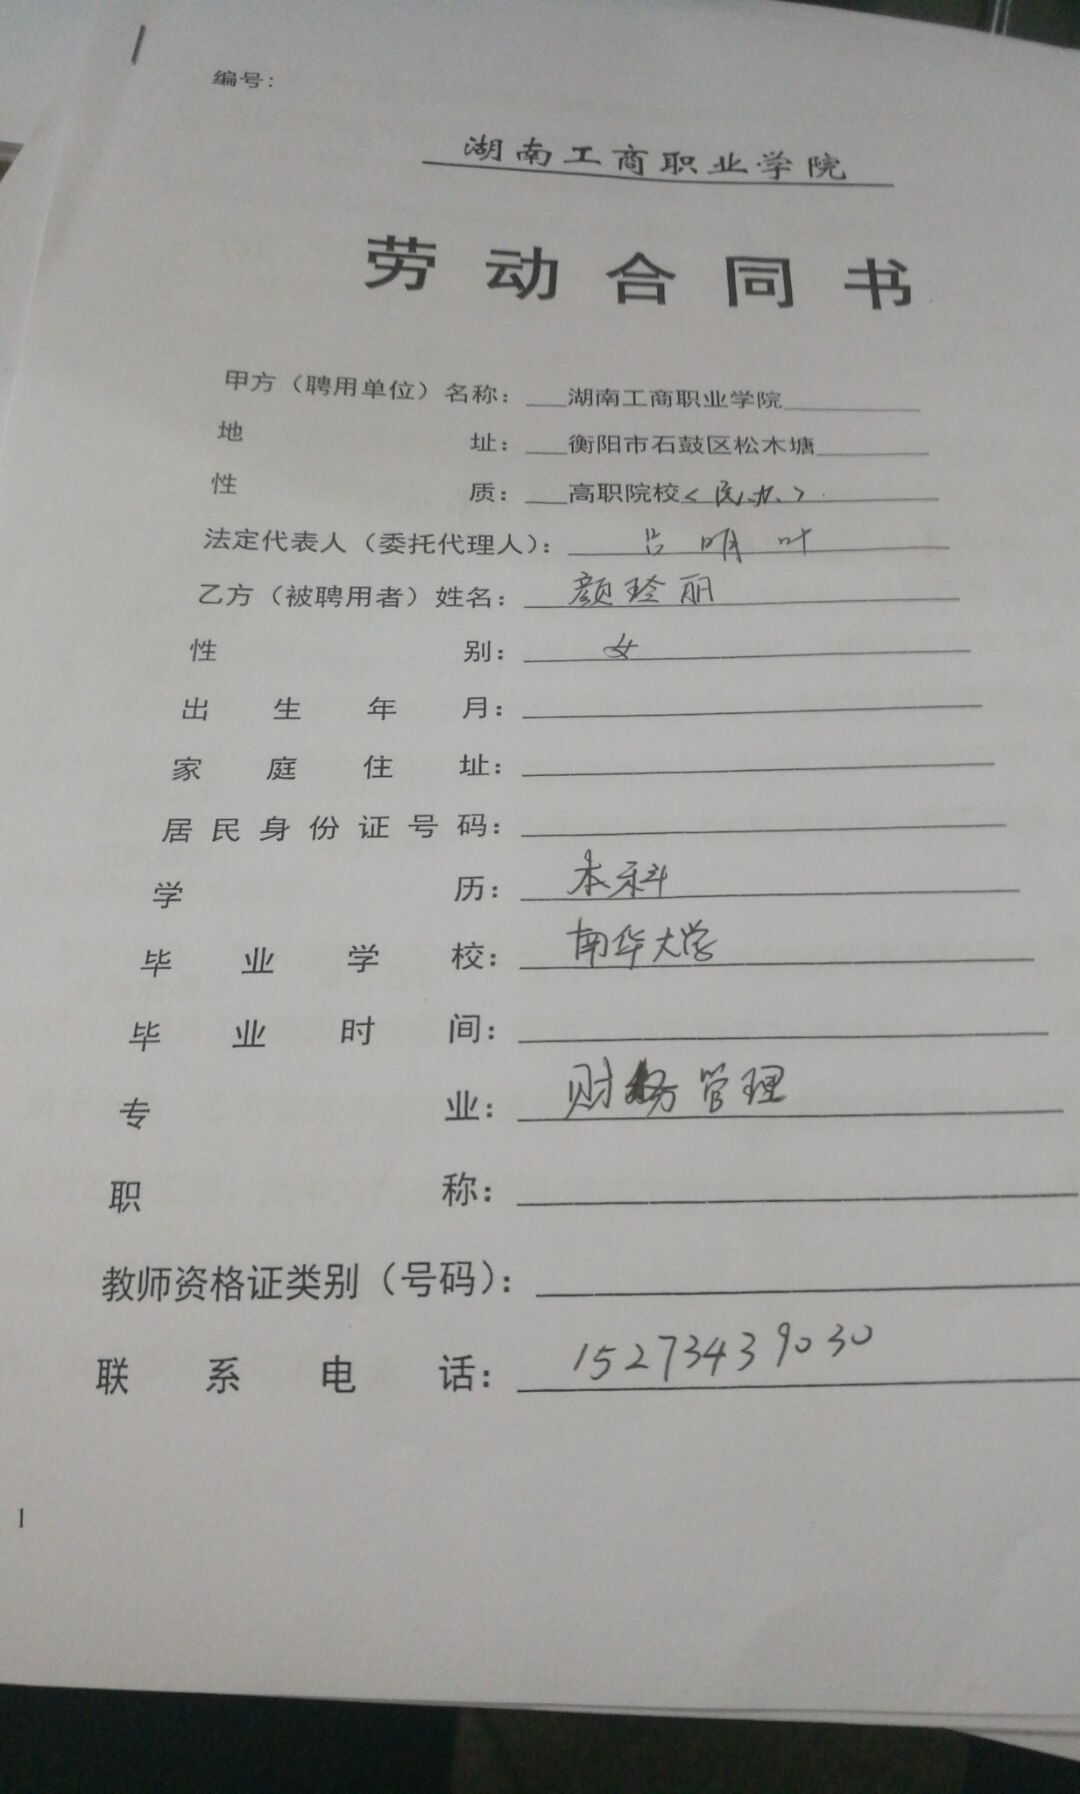 编号：
湖南工商职业学院
劳动合同书
甲方（聘用单位）名称：湖南工商职业学院
地址：衡阳市石鼓区松木塘
性质：高职院校（民办）
法定代表人（委托代理人）：吕明叶
乙方（被聘用者）姓名：颜玲丽
性别：女
出生年月：
家庭住址：
居民身份证号码：
学历：本科
毕业学校：南华大学
毕业时间：
专业：财务管理
职称：
教师资格证类别（号码）：
联系电话：15273439030
1